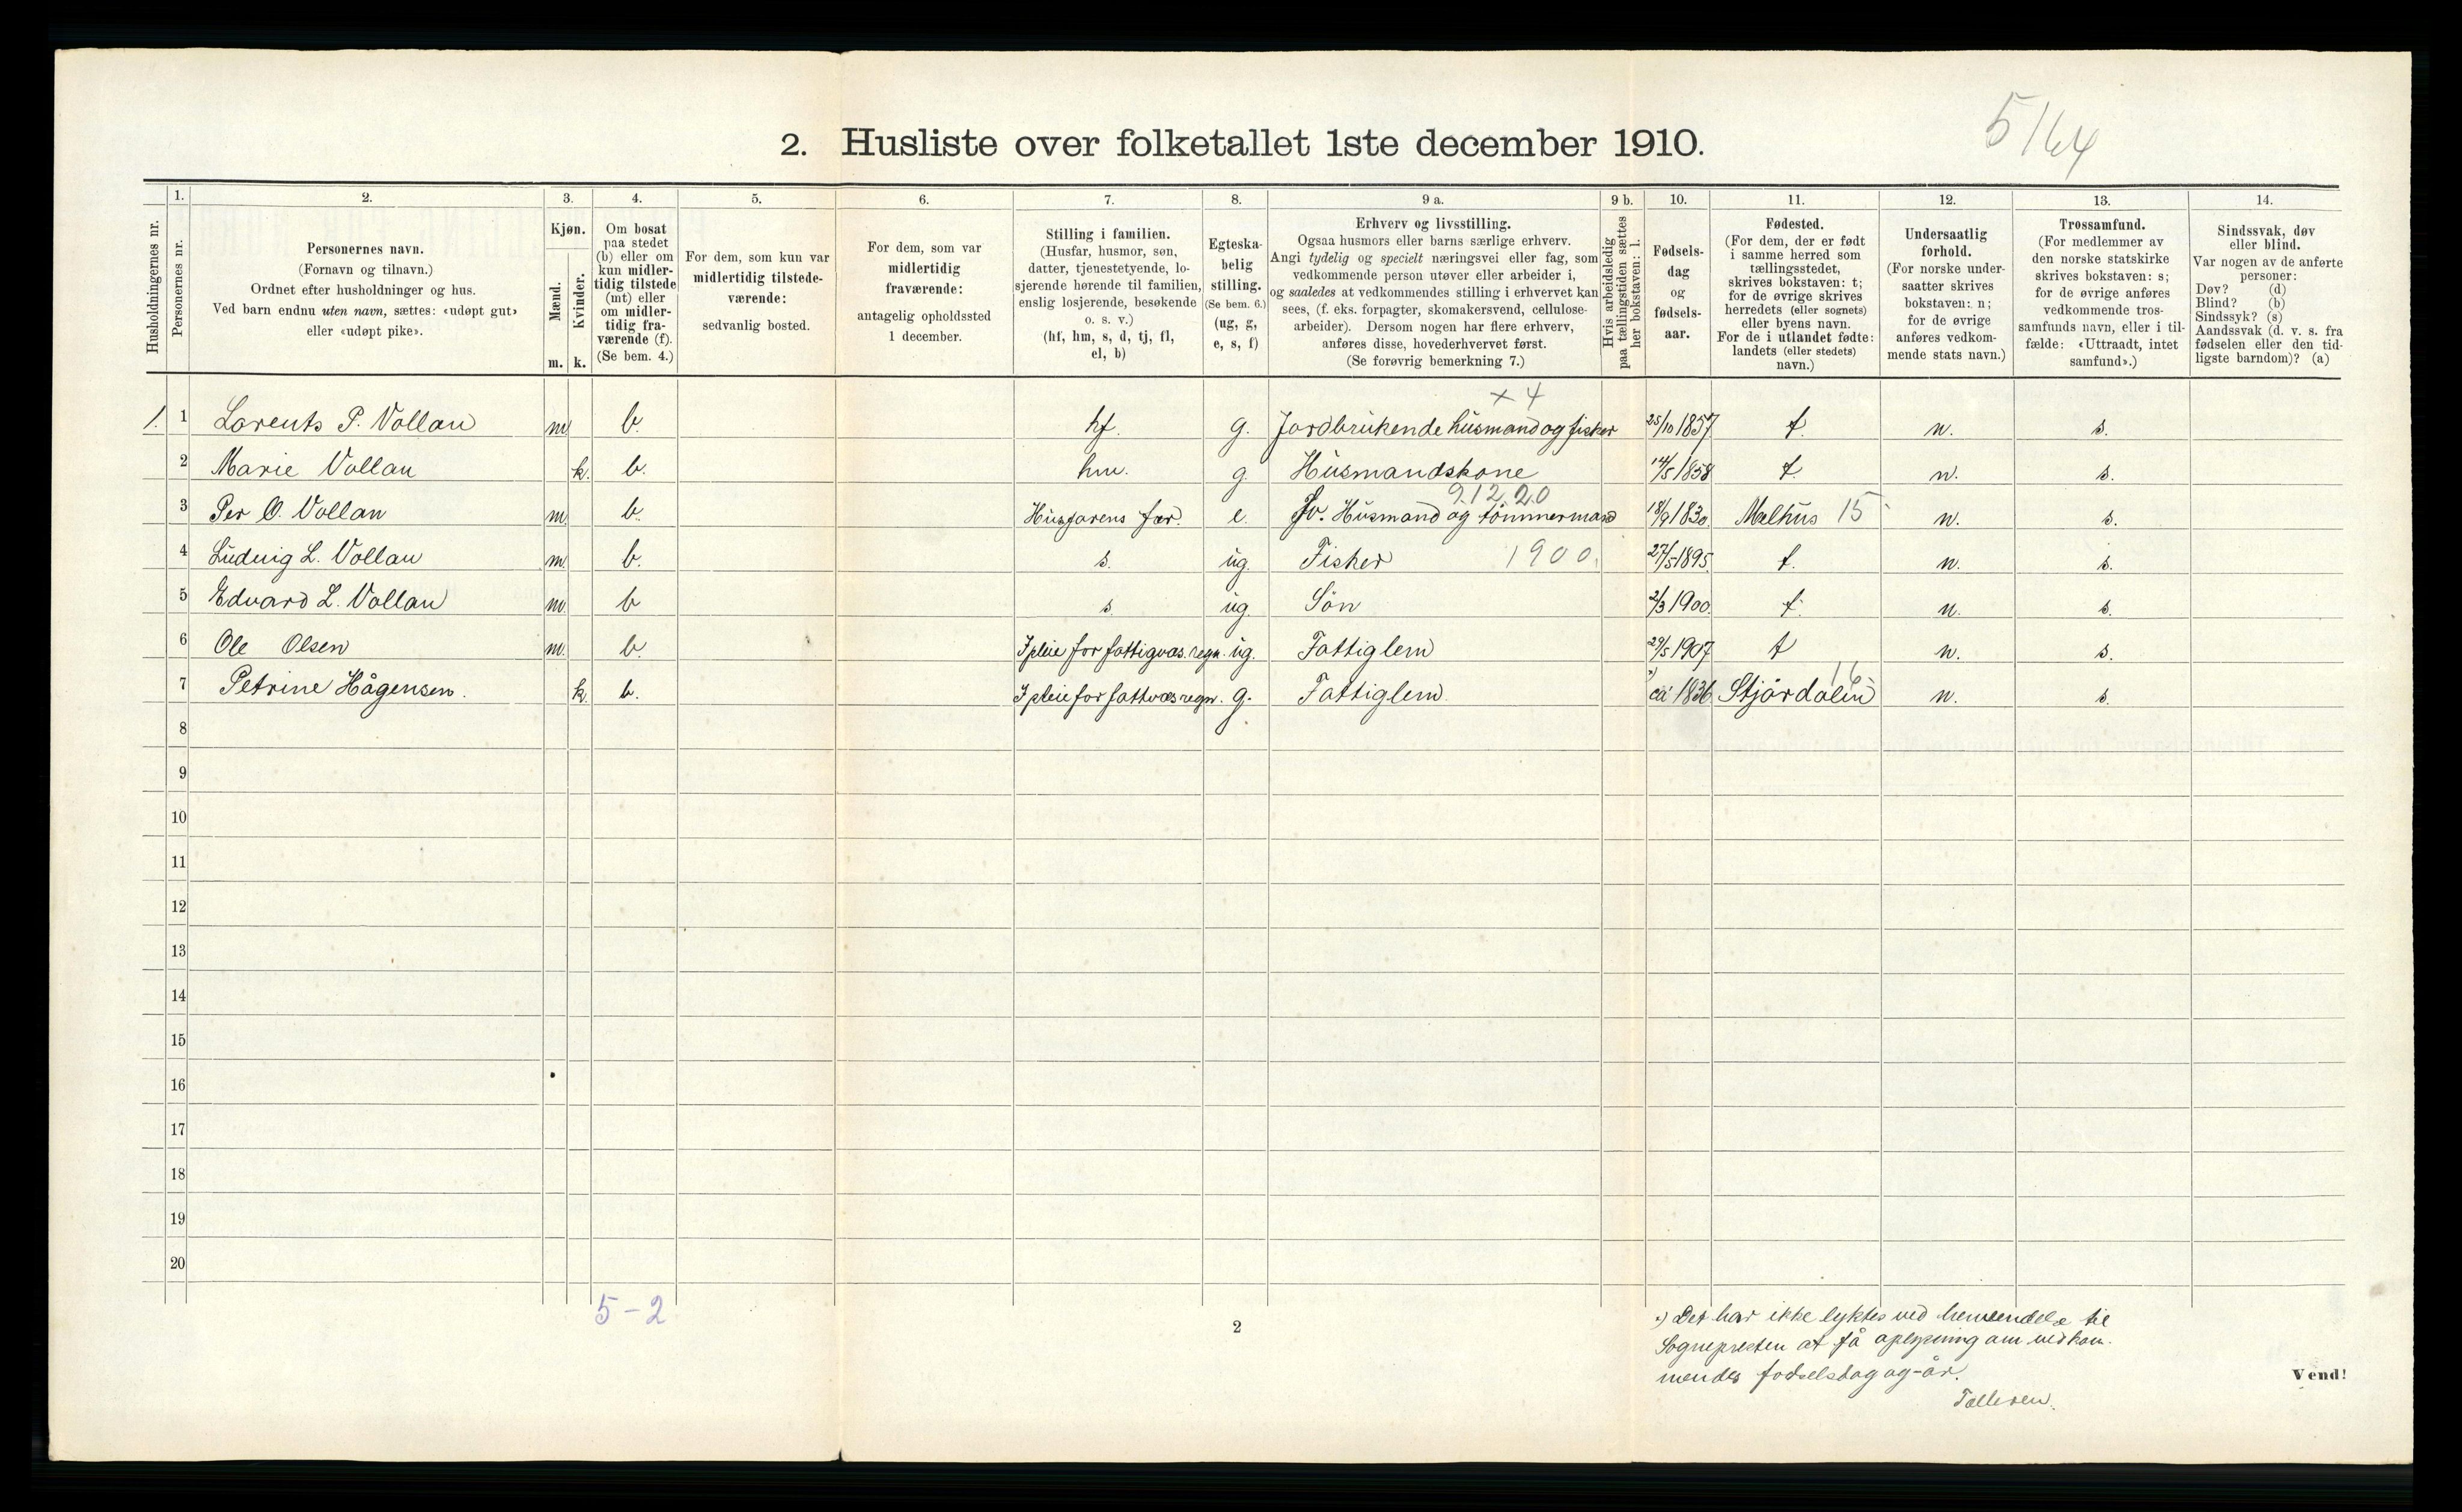 5164
2. Husliste over folketallet 1ste december 1910.
Husholdningernes nr.
1. Personernes nr.
2. Personernes navn.
(Fornavn og tilnavn.)
Ordnet efter husholdninger og hus.
Ved barn endnu uten navn, sættes: «udøpt gut»
eller «udøpt pike».
3. Kjøn.
Mænd. m.
Kvinder. k.
4. Om bosat
paa stedet
(b) eller om
kun midler-
tidig tilstede
(mt) eller
om midler-
tidig fra-
værende (f).
(Se bem. 4.)
5. For dem, som kun var
midlertidig tilstede-
værende:
sedvanlig bosted.
6. For dem, som var
midlertidig
fraværende:
antagelig opholdssted
1 december.
7. Stilling i familien.
(Husfar, husmor, søn,
datter, tjenestetyende, lo-
sjerende hørende til familien,
enslig losjerende, besøkende
o. s. v.)
(hf, hm, s, d, tj, fl,
el, b)
8. Egteska-
belig
stilling.
(Se bem. 6.)
(ug, g,
e, s, f)
9 a. Erhverv og livsstilling.
Ogsaa husmors eller barns særlige erhverv.
Angi tydelig og specielt næringsvei eller fag, som
vedkommende person utøver eller arbeider i,
og saaledes at vedkommendes stilling i erhvervet kan
sees, (f. eks. forpagter, skomakersvend, cellulose-
arbeider). Dersom nogen har flere erhverv,
anføres disse, hovederhvervet først.
(Se forøvrig bemerkning 7.)
9 b. Hvis arbeidsledig
paa tællingstiden sættes
her bokstaven: l.
10. Fødsels-
dag
og
fødsels-
aar.
11. Fødested.
(For dem, der er født
i samme herred som
tællingsstedet,
skrives bokstaven: t;
for de øvrige skrives
herredets (eller sognets)
eller byens navn.
For de i utlandet fødte:
landets (eller stedets)
navn.)
12. Undersaatlig
forhold.
(For norske under-
saatter skrives
bokstaven: n;
for de øvrige
anføres vedkom-
mende stats navn.)
13. Trossamfund.
(For medlemmer av
den norske statskirke
skrives bokstaven: s;
for de øvrige anføres
vedkommende tros-
samfunds navn, eller i til-
fælde: «Uttraadt, intet
samfund».)
14. Sindssvak, døv
eller blind.
Var nogen av de anførte
personer:
Døv? (d)
Blind? (b)
Sindssyk? (s)
Aandssvak (d. v. s. fra
fødselen eller den tid-
ligste barndom)? (a)
x 4
1. 1 Lorents P. Vollan m b. hf. g. Jordbrukende husmand og fisker 25/10 1857 t. n. s.
2 Marie Vollan k. b. hm. g. Husmandskone 14/5 1858 t. n. s.
9.12.20
3 Per O. Vollan m. b. Husfarens far. e. Fv. Husmand og tømmermand 18/9 1830 Melhus 15 n. s.
4 Ludvig L. Vollan m. b. s. ug. Fisker 1900. 27/5 1895. t. n. s.
5 Edvard L. Vollan m. b s. ug. Søn 2/3 1900. t. n. s.
6 Ole Olsen m. b. I pleie for fattigvæs. regn. ug. Fattiglem 29/5 1907 t n. s.
16
7 Petrine Hågensen. k. b. I pleie for fattvæs regn. g. Fattiglem ca 1836 Stjørdalen n. s.
8
9
10
11
12
13
14
15
16
17
18
19
20
5-2
2
*) Det har ikke lyktes ved henvendelse til
Sognepresten at få oplysning om vedkom-
mendes fødselsdag og -år.
Tælleren.
Vend!